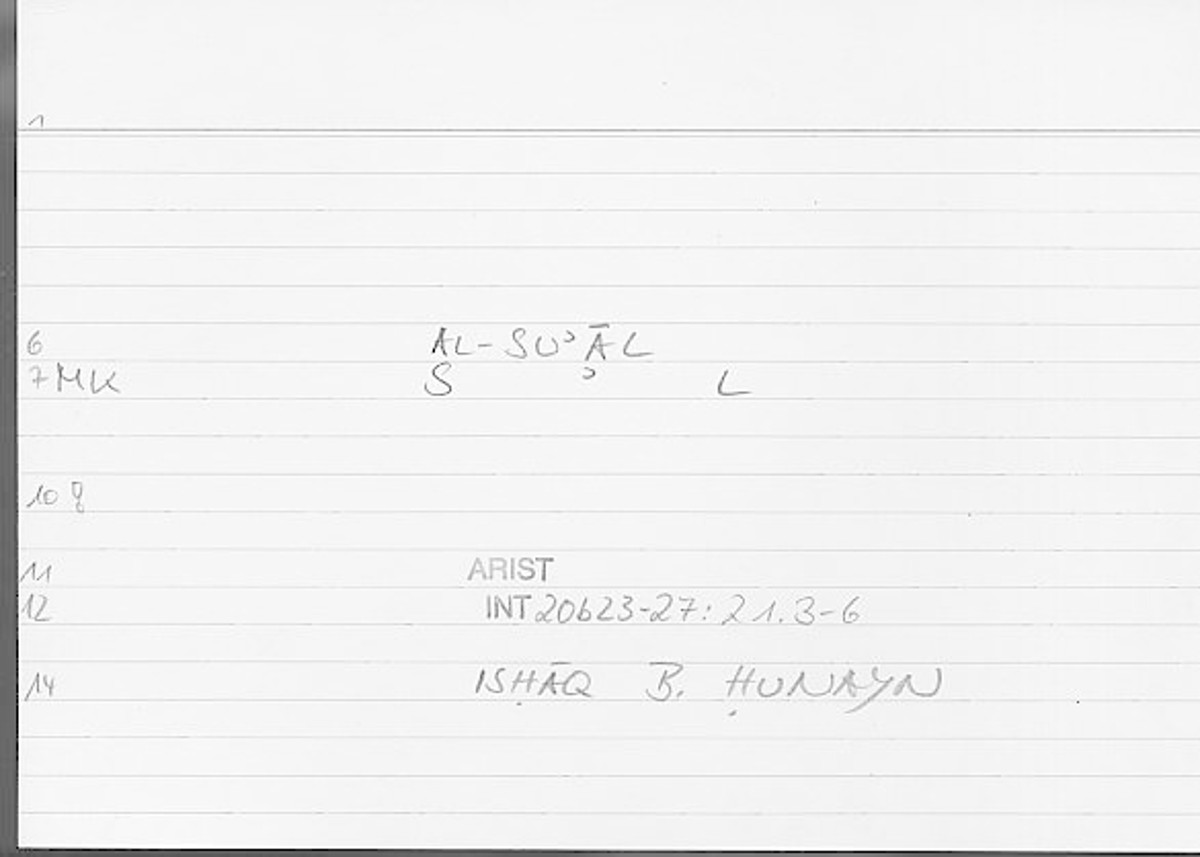 1
6 AL-SUʾĀL
7 MK S ʾ L
10 8
11 ARIST
12 INT 20b23-27: 21.3-6
14 ISḤĀQ B. ḤUNAYN